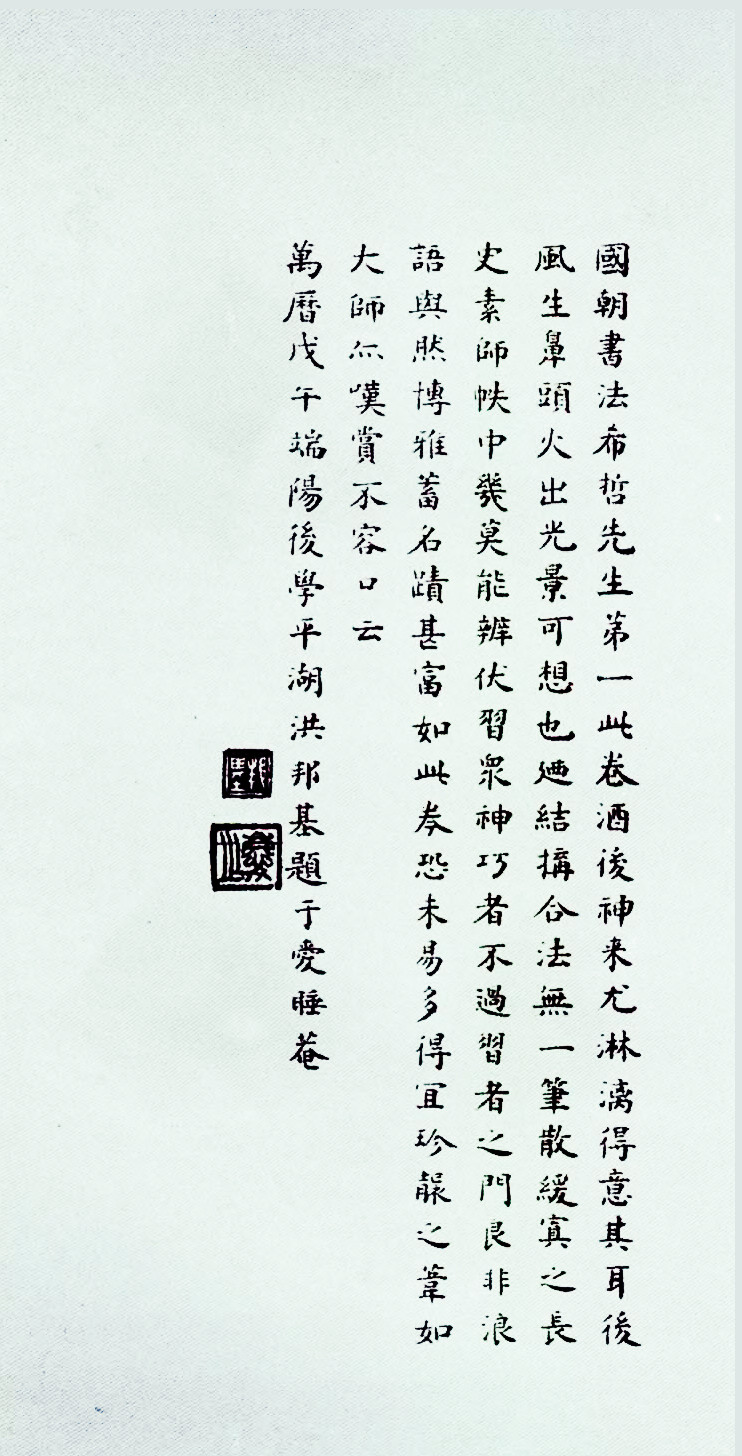 國朝書法希哲先生第一此卷酒後神来尤淋漓得意其耳後
風生鼻頭火出光景可想也廼結搆合法無一筆散緩寘之長
史素師帙中幾莫能辨伏習衆神巧者不過習者之門良非浪
語與然博雅蓄名蹟甚富如此卷恐未易多得宜珍襲之葦如
大師亦嘆賞不容口云
萬曆戊午端陽後學平湖洪邦基題于愛睡菴